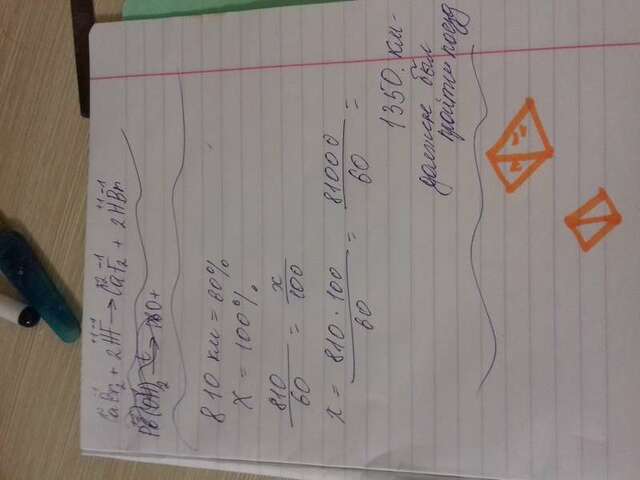 CaBr₂ + 2HF → CaF₂ + 2HBr
Pb(OH)₂ →t PbO +
810 км = 60%
X = 100%
810/60 = x/100
x = 810 · 100/60 = 81000/60 =
1350. км -
должен был
пройти поезд